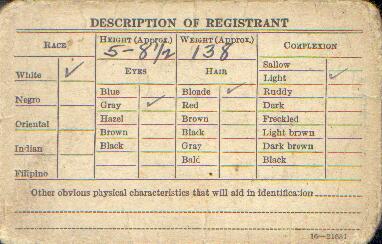 DESCRIPTION OF REGISTRANT
RACE HEIGHT (Approx.) WEIGHT (Approx.) COMPLEXION
5-8 1/2 138
EYES HAIR
White ✓
Negro
Oriental
Indian
Filipino
Blue
Gray ✓
Hazel
Brown
Black
Blonde ✓
Red
Brown
Black
Gray
Bald
Sallow
Light ✓
Ruddy
Dark
Freckled
Light brown
Dark brown
Black
Other obvious physical characteristics that will aid in identification
16-21631